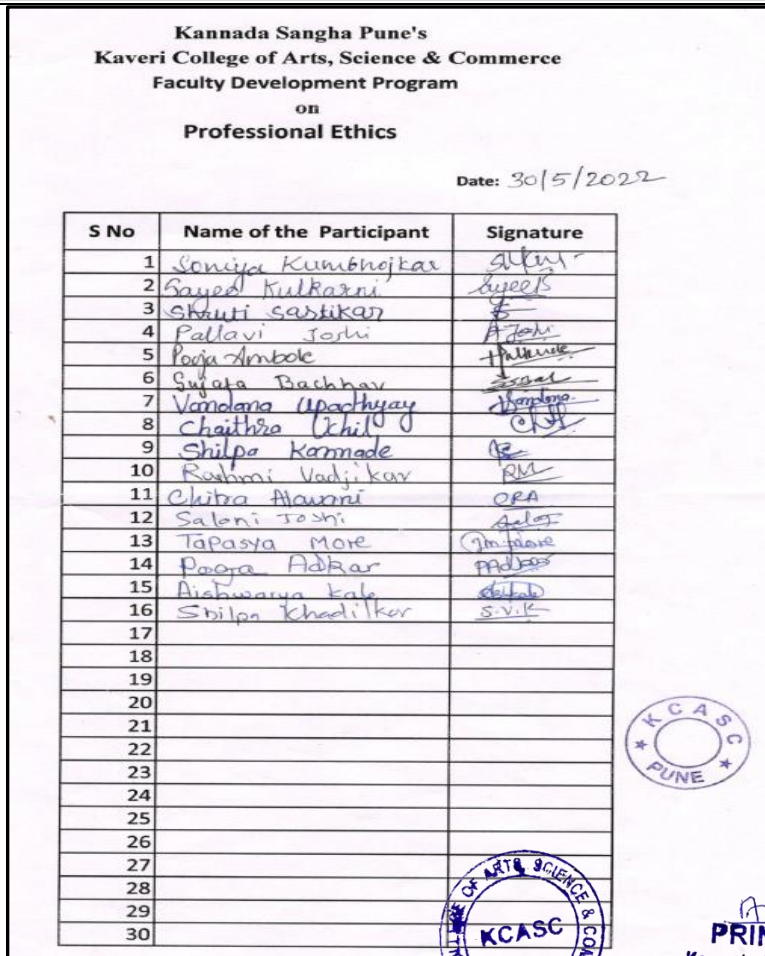 Kannada Sangha Pune's
Kaveri College of Arts, Science & Commerce
Faculty Development Program
on
Professional Ethics
Date: 30/5/2022
S No Name of the Participant Signature
1 Soniya Kumbhojkar
2 Sayee Kulkarni
3 Shruti Sastikar
4 Pallavi Joshi AJoshi
5 Pooja Ambole
6 Sujata Bachhav
7 Vandana Upadhyay Vandana
8 Chaithra Uchil
9 Shilpa Kannade
10 Rashmi Vadjikar RM
11 Chitra Alawni ORA
12 Saloni Joshi
13 Tapasya More
14 Pooja Adkar
15 Aishwarya Kale
16 Shilpa Khadilkar S.V.K
17
18
19
20
21
22
23
24
25
26
27
28
29
30
KCASC
PUNE
OF ARTS SCIENCE & COM
KCASC
PRIN